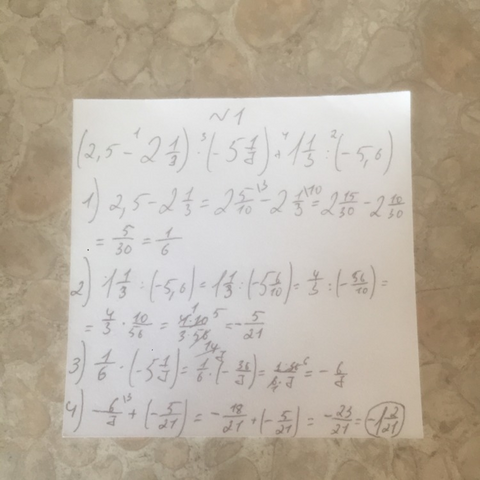 №1
(2,5 - 2 1/3) · (-5 1/7) + 1 1/3 : (-5,6)
1) 2,5 - 2 1/3 = 2 5/10 - 2 1/3 = 2 15/30 - 2 10/30
= 5/30 = 1/6
2) 1 1/3 : (-5,6) = 1 1/3 : (-5 6/10) = 4/3 : (-56/10) =
= 4/3 · 10/56 = 4·10/3·56 = -5/21
3) 1/6 · (-5 1/7) = 1/6 · (-36/7) = = -6/7
4) -6/7 + (-5/21) = -18/21 + (-5/21) = -23/21 = -1 2/21